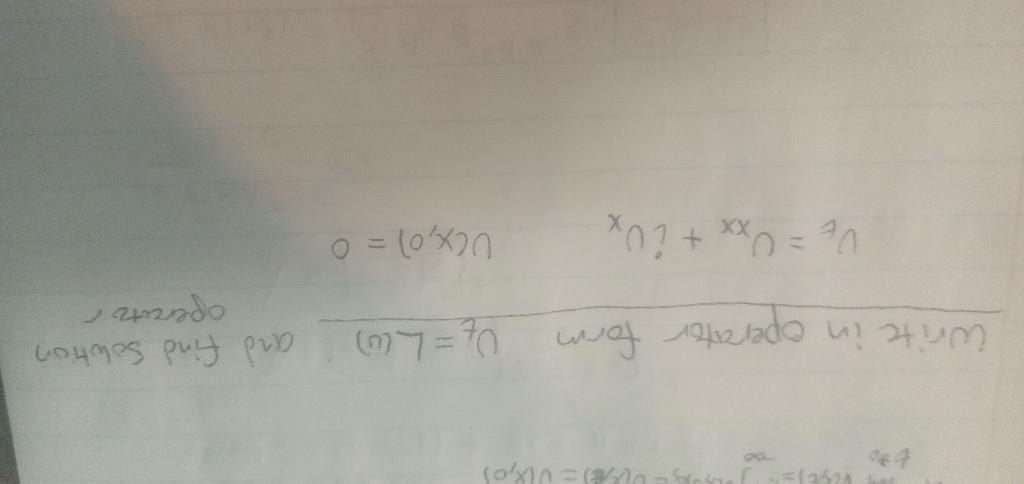 Write in operator form U_t = L(u) and find solution
operator
U_t = U_xx + iU_x U(x,0) = 0
= U(x,0)